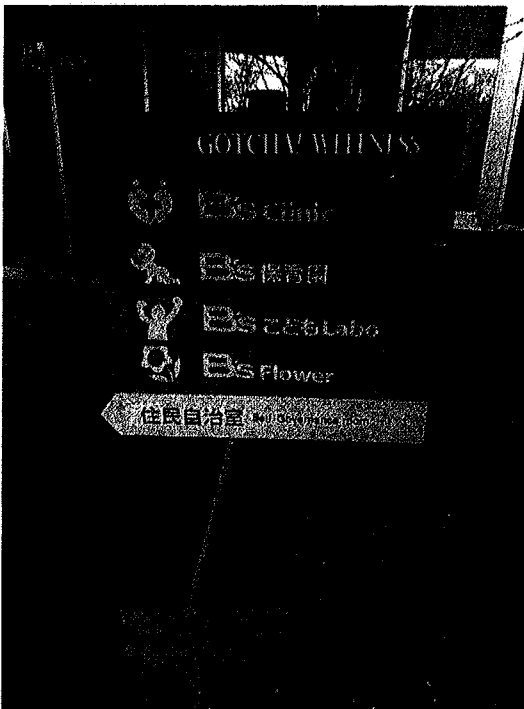 GOTCHA! WELLNESS
B's Clinic
B's 保育園
B's こども Labo
B's Flower
住民自治室